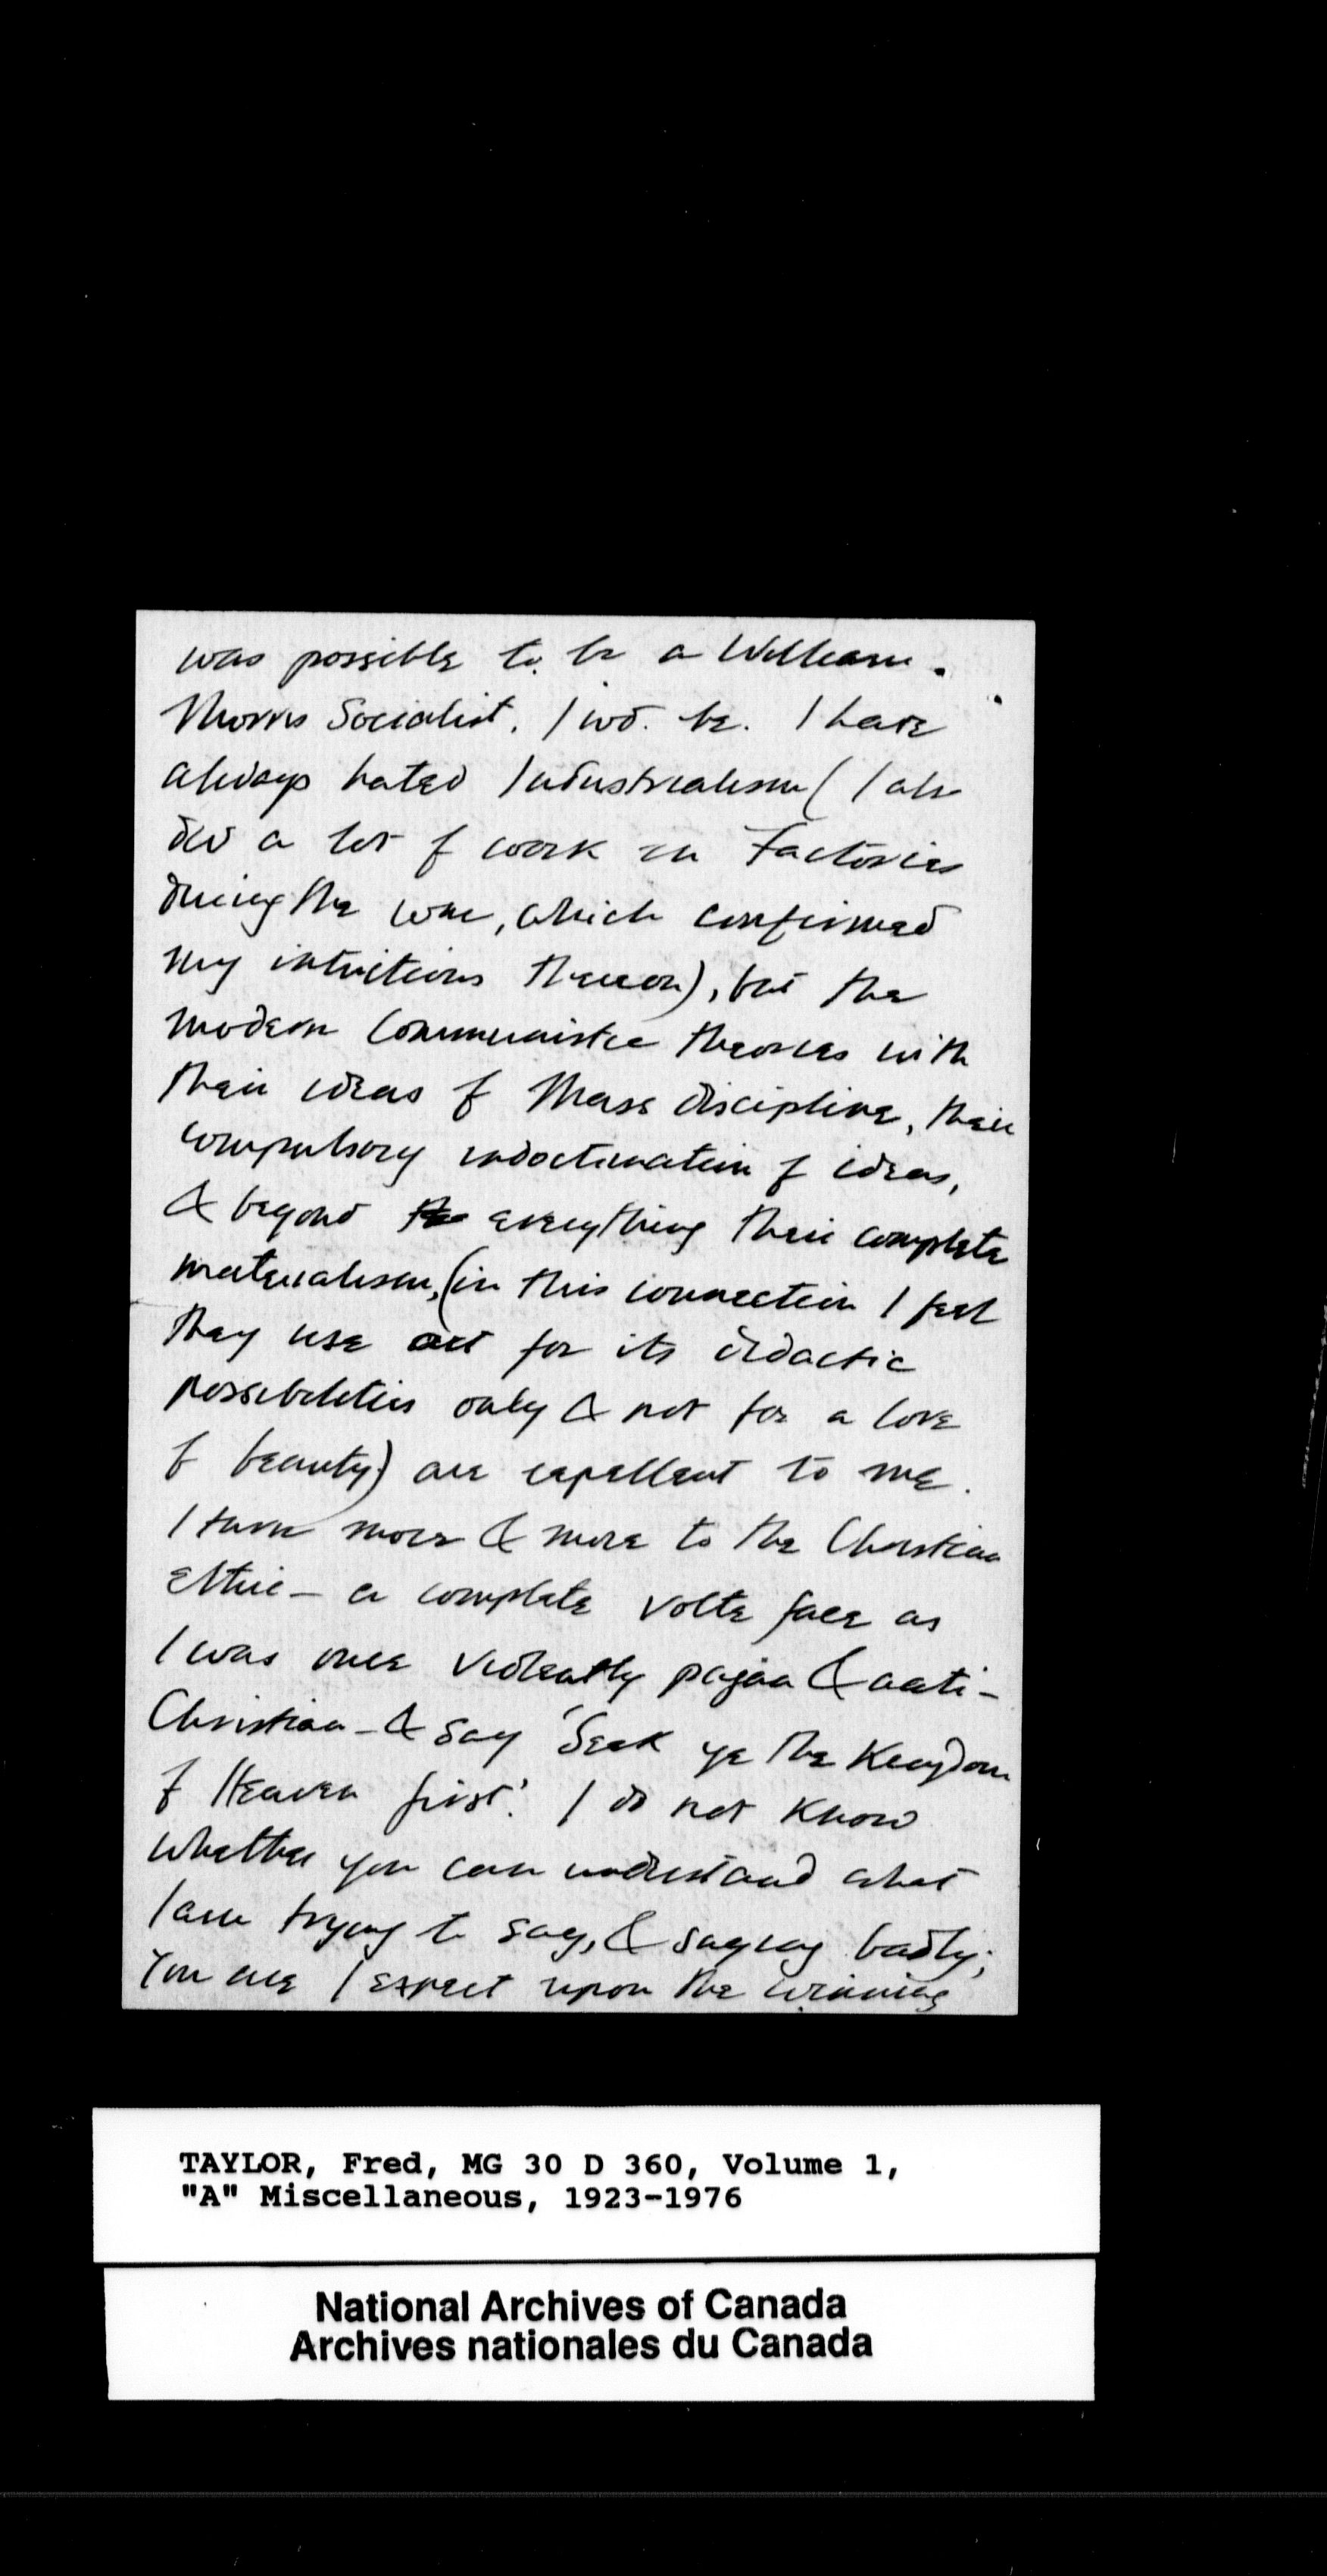 was possible to be a William.
Morris Socialist, I wd. be. I have
always hated Industrialism (I also
did a lot of work in Factories
during the war, which confirmed
my intuitions thereon), but the
modern Communistic theories with
their ideas of Mass discipline, their
compulsory indoctrination of ideas,
& beyond the everything their complete
materialism, (in this connection I feel
they use art for its didactic
possibilities only & not for a love
of beauty) are repellent to me.
I turn more & more to the Christian
Ethic - a complete volte face as
I was once violently pagan & anti-
Christian - & say 'Seek ye the Kingdom
of Heaven first'. I do not know
whether you can understand what
I am trying to say, & saying badly;
You are I expect upon the winning
TAYLOR, Fred, MG 30 D 360, Volume 1,
"A" Miscellaneous, 1923-1976
National Archives of Canada
Archives nationales du Canada